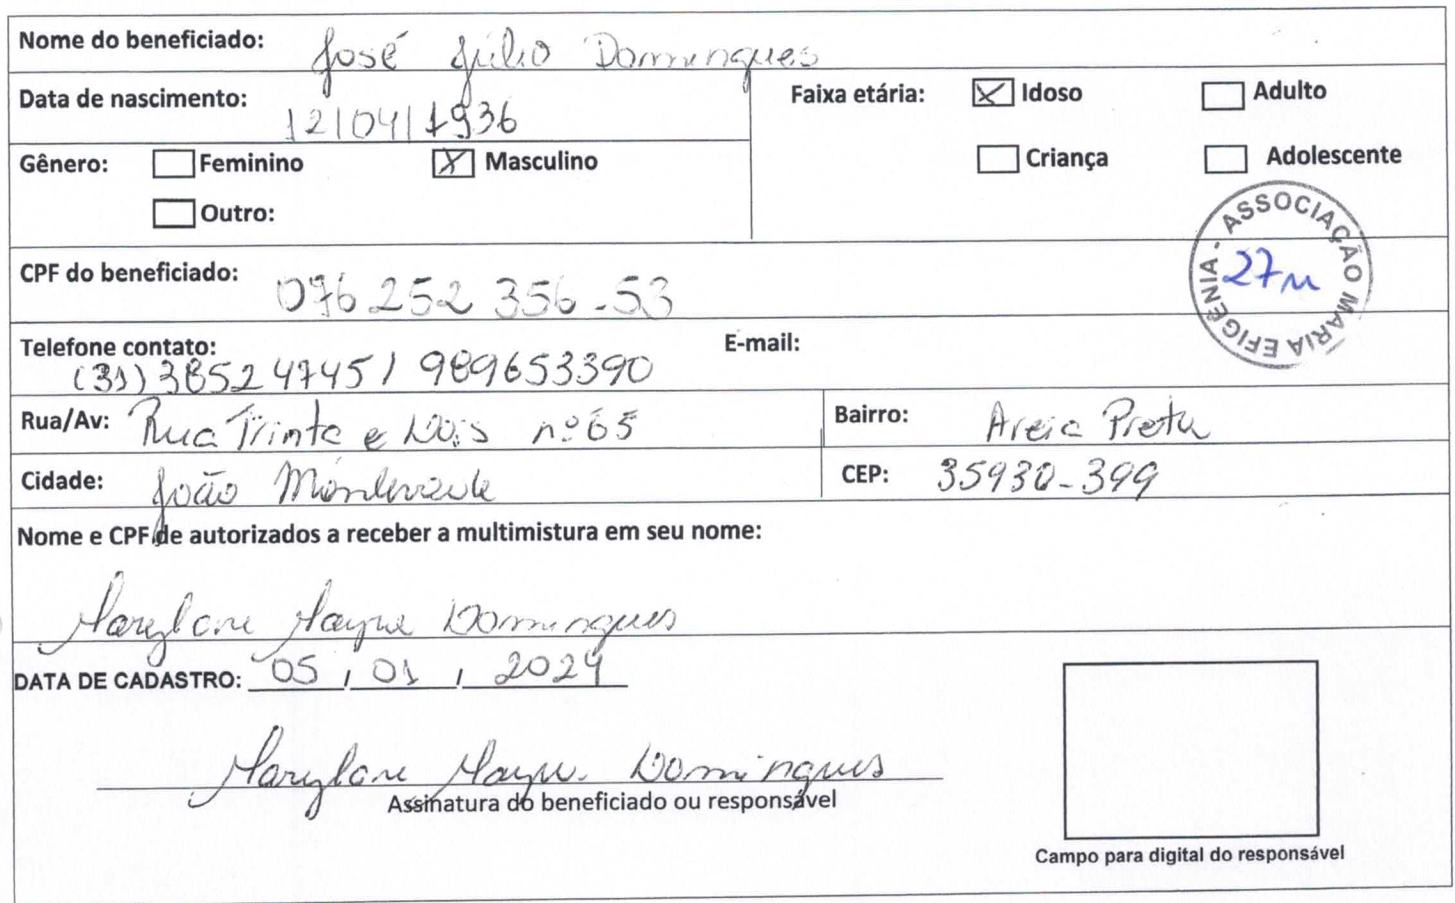 Nome do beneficiado: José Júlio Domingues
Data de nascimento: 12/04/1936
Faixa etária: [X] Idoso [ ] Adulto
[ ] Criança [ ] Adolescente
Gênero: [ ] Feminino [X] Masculino
[ ] Outro:
CPF do beneficiado: 076 252 356-53
ASSOCIAÇÃO MARIA EFIGÊNIA -
Telefone contato: (31) 38524745 / 989653390 E-mail:
Rua/Av: Rua Trinta e Dois nº 65 Bairro: Areia Preta
Cidade: João Monlevade CEP: 35930-399
Nome e CPF de autorizados a receber a multimistura em seu nome:
Domingues
DATA DE CADASTRO: 05 / 01 / 2024
Domingues
Assinatura do beneficiado ou responsável
Campo para digital do responsável